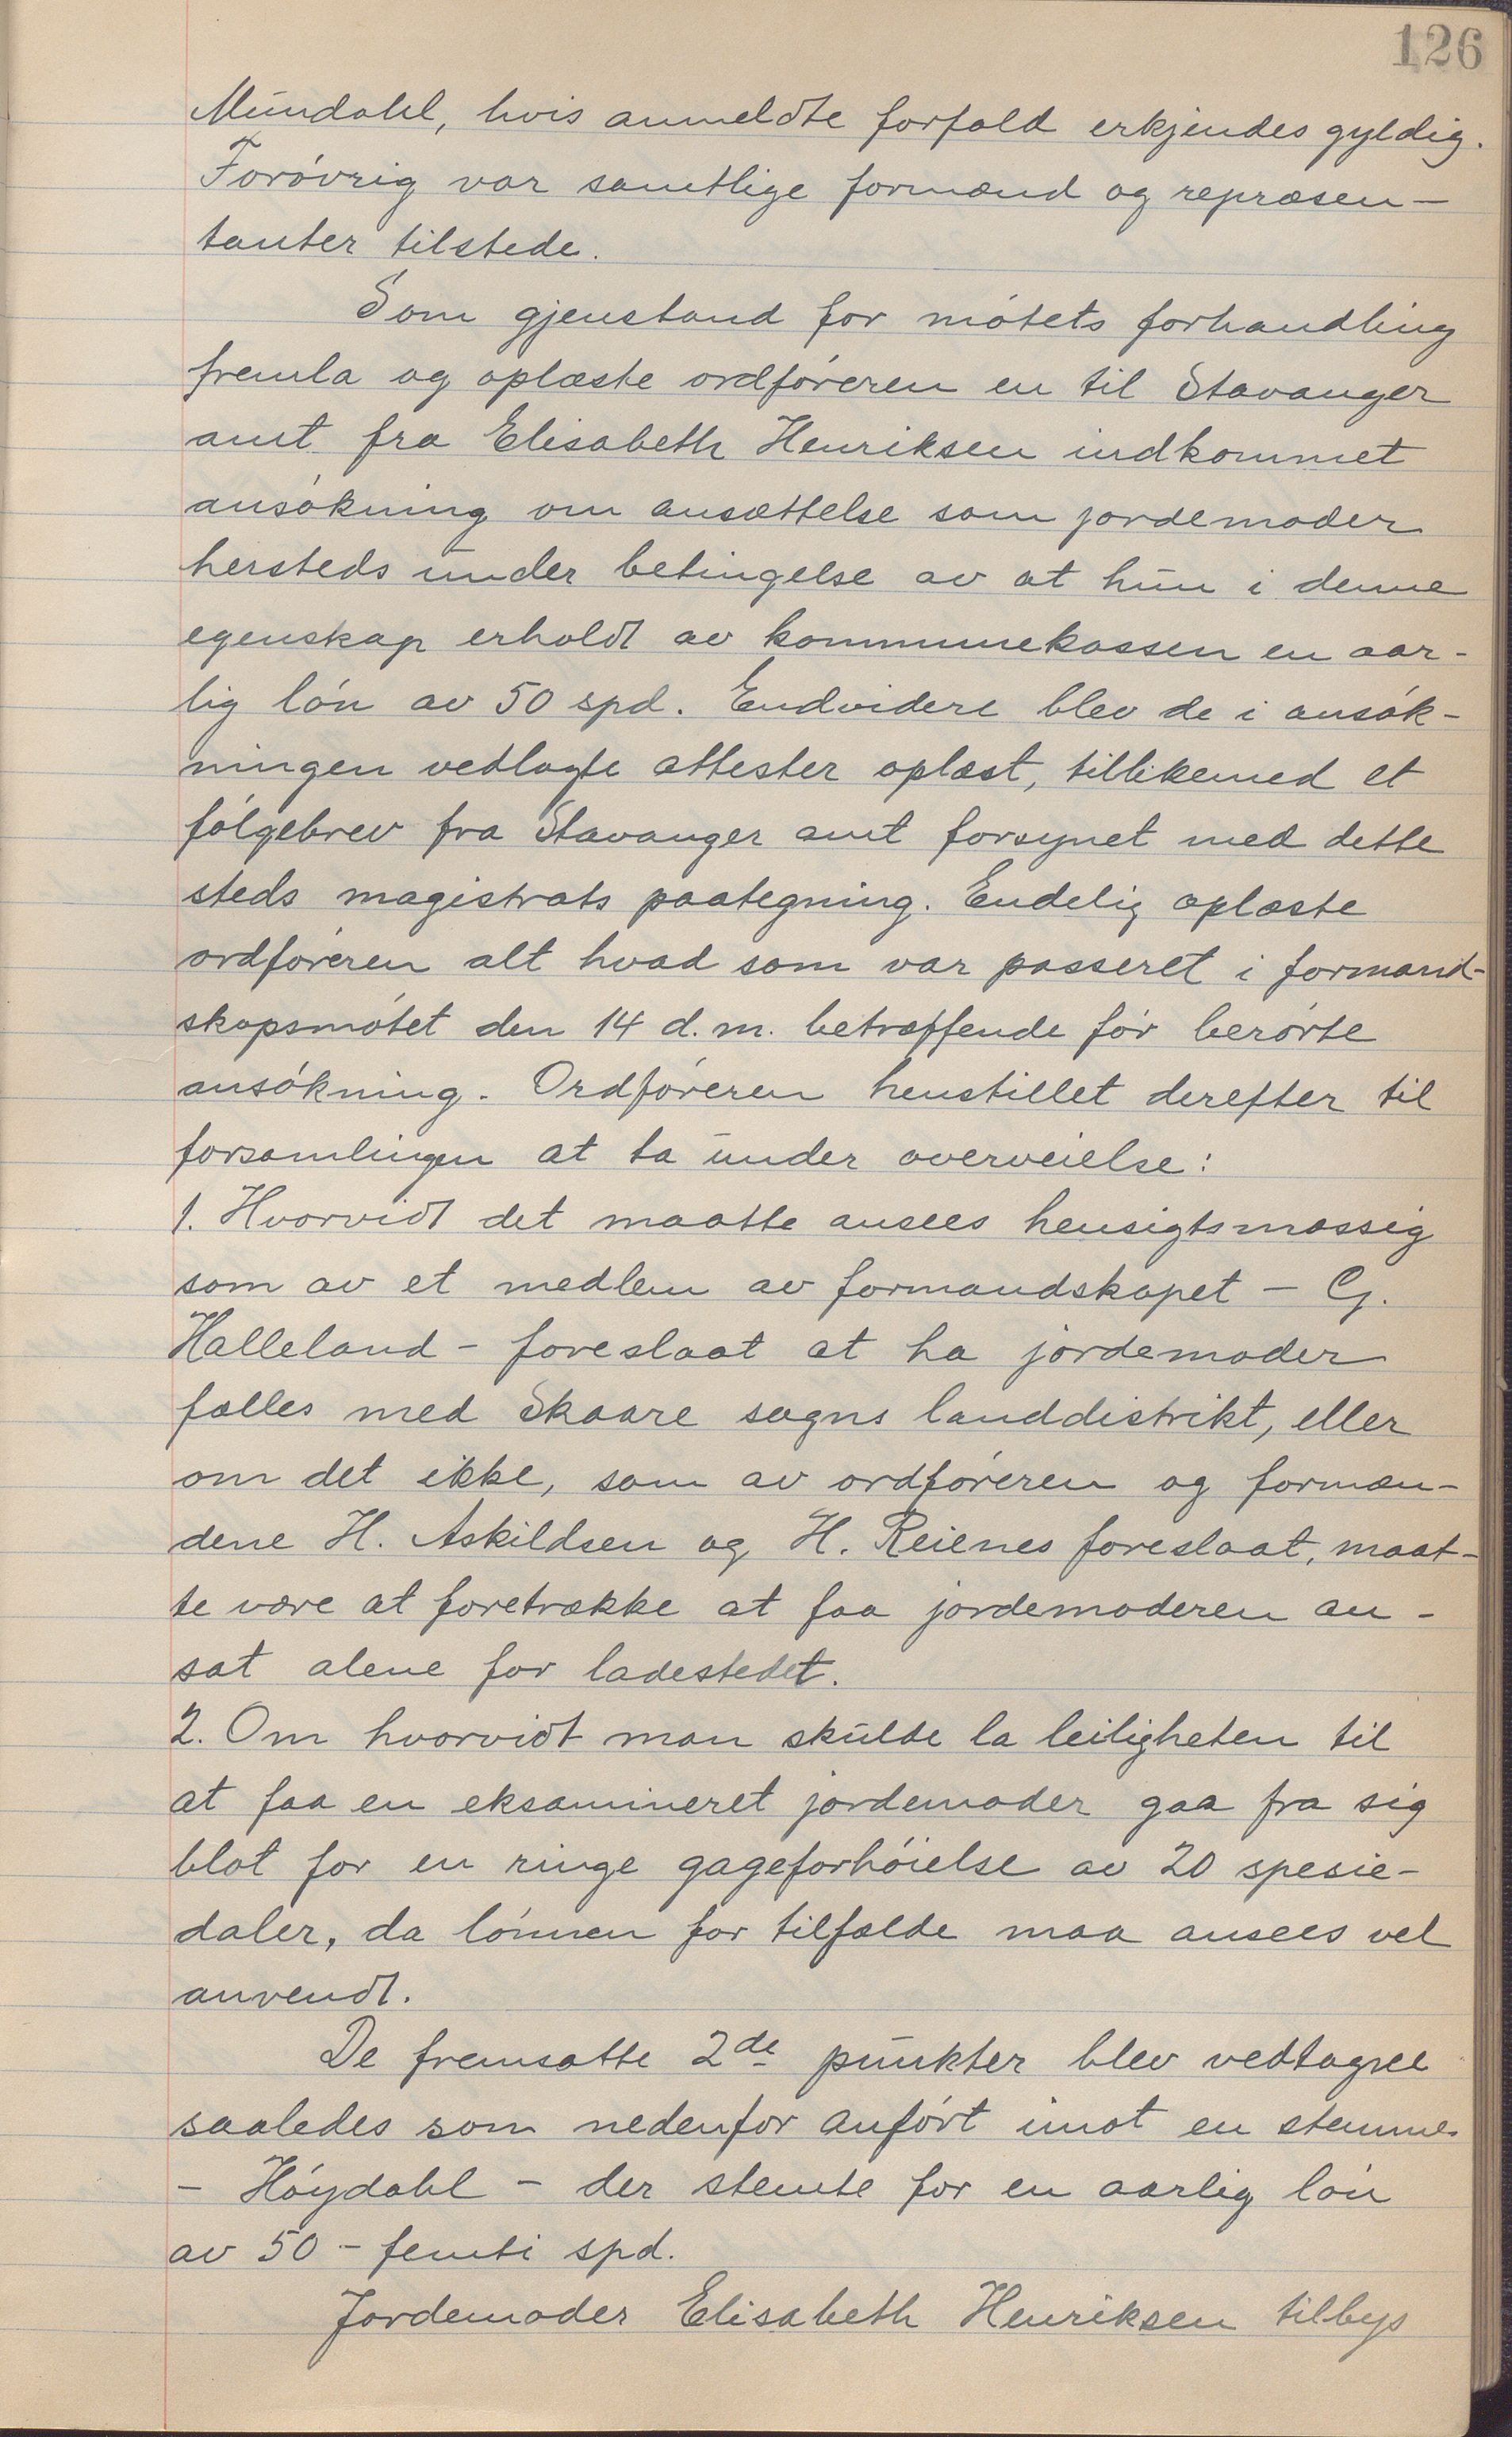 126
Mundahl, hvis anmeldte forfald erkjendes gyldig.
Forøvrig var samtlige formænd og repræsen-
tanter tilstede.
Som gjenstand for møtets forhandling
fremla og oplæste ordføreren en til Stavanger
amt fra Elisabeth Henriksen indkommet
ansøkning om ansættelse som jordemoder
hersteds under betingelse av at hun i denne
egenskap erholdt av kommunekassen en aar-
lig løn av 50 spd. Endvidere blev de i ansøk-
ningen vedlagte attester oplæst, tillikemed et
følgebrev fra Stavanger amt forsynet med dette
steds magistrats paategning. Endelig oplæste
ordføreren alt hvad som var passeret i formand-
skapsmøtet den 14 d.m. betræffende før berørte
ansøkning. Ordføreren henstillet derefter til
forsamlingen at ta under overveielse:
1. Hvorvidt det maatte ansees hensigtsmæssig
som av et medlem av formandskapet - G.
Halleland - foreslaat at ha jordemoder
fælles med Skaare sogns landdistrikt, eller
om det ikke, som av ordføreren og formæn-
dene H. Askildsen og H. Reienes foreslaat, maat-
te være at foretrække at faa jordemoderen an-
sat alene for ladestedet.
2. Om hvorvidt man skulde la leiligheten til
at faa en eksamineret jordemoder gaa fra sig
blot for en ringe gageforhøielse av 20 spesie-
daler, da lønnen for tilfælde maa ansees vel
anvendt.
De fremsatte 2de punkter blev vedtagne
saaledes som nedenfor anført imot en stemme
- Høydahl - der stemte for en aarlig løn
av 50 - femti spd.
Jordemoder Elisabeth Henriksen tilbys